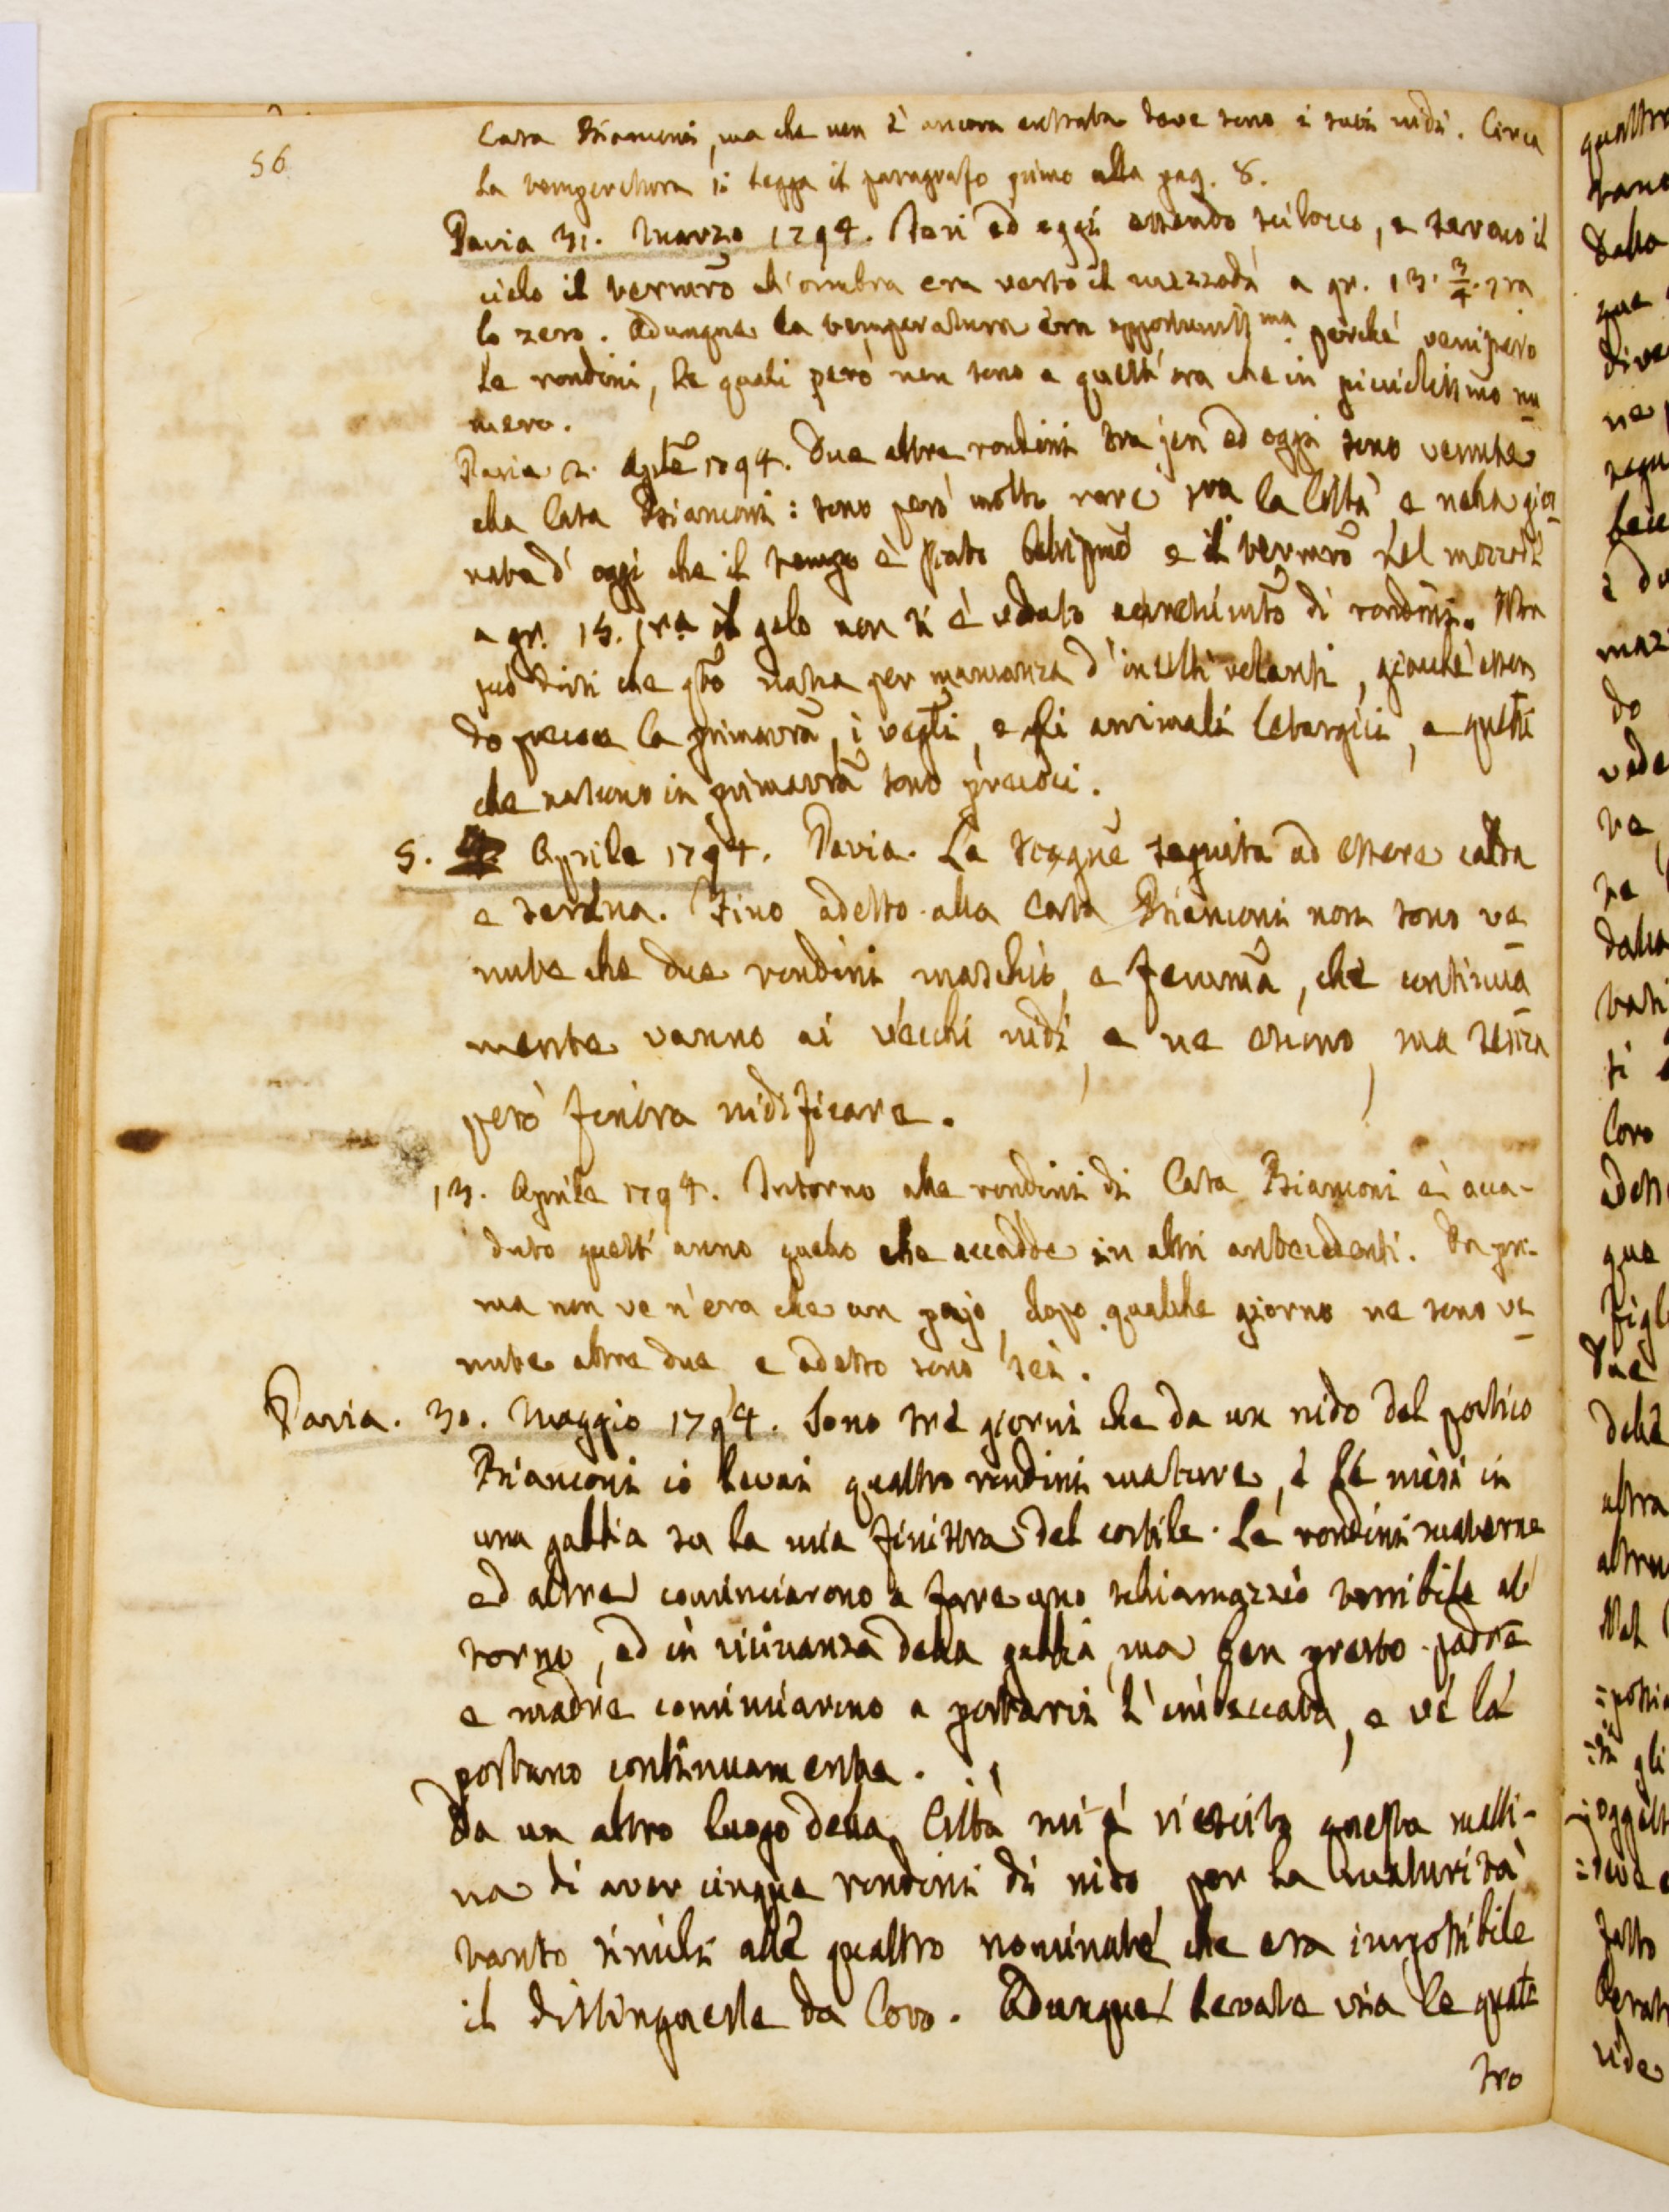 56
Casa Bianconi, ma che non è ancora entrata dove sono i suoi nidi. Circa
la temperatura si legga il paragrafo primo alla pag. 8.
Pavia 31. Marzo 1794. Ieri ed oggi essendo scilocco, e sereno il
cielo il termro all'ombra era verso il mezzodì a gr. 13. 3/4 sra
lo zero. Adunque la temperatura era opportuniss ma perché venissero
le rondini, le quali però non sono a quest'ora che in picciolissimo nu
mero.
Pavia 2. Aple 1794. Due altre rondini tra jeri ed oggi sono venute
alla Casa Bianconi: sono però molto rare sra la Città e nella gior
nata d'oggi che il tempo è stato bellissimo e il termro del mezzodì
a gr. 15. sra il gelo non si è veduto di rondini. Non
può dirsi che qto nasca per mancanza d'insetti volanti, giacché essen
do precoce la primavra, i vegeli, e gli animali letargici, e questi
che nascono in primavra sono precoci.
5. Aprile 1794. Pavia. La stagne seguita ad essere calda
e serena. Fino adesso alla Casa Bianconi non sono ve
nute che due rondini maschio, e femma, che continua
mente vanno ai vecchi nidi, e ne escono, ma senza
però finora nidificare.
13. Aprile 1794. Intorno alle rondini di Casa Bianconi è acca-
duto quest'anno quello che accadde in altri antecedenti. Da pri-
ma non ve n'era che un pajo, dopo qualche giorno ne sono ve
nute altre due, e adesso sono sei.
Pavia. 30. Maggio 1794. Sono tre giorni che da un nido del portico
Bianconi io levai quattro rondini mature, e le misi in
una gabbia su la mia finistra del cortile. Le rondini materne
ed altre cominciarono a fare uno schiamazzio terribile at
torno, ed in vicinanza della gabbia, ma ben presto padre
e madre cominciarono a portarci l'imbeccata, e ve la
portano continuamente.
Da un altro luogo della Città mi è riescito questa matti-
na di aver cinque rondini di nido per la maturità
tanto simili alle quattro nominate che era impossibile
il distinguerle da loro. Adunque levate via le quat
tro